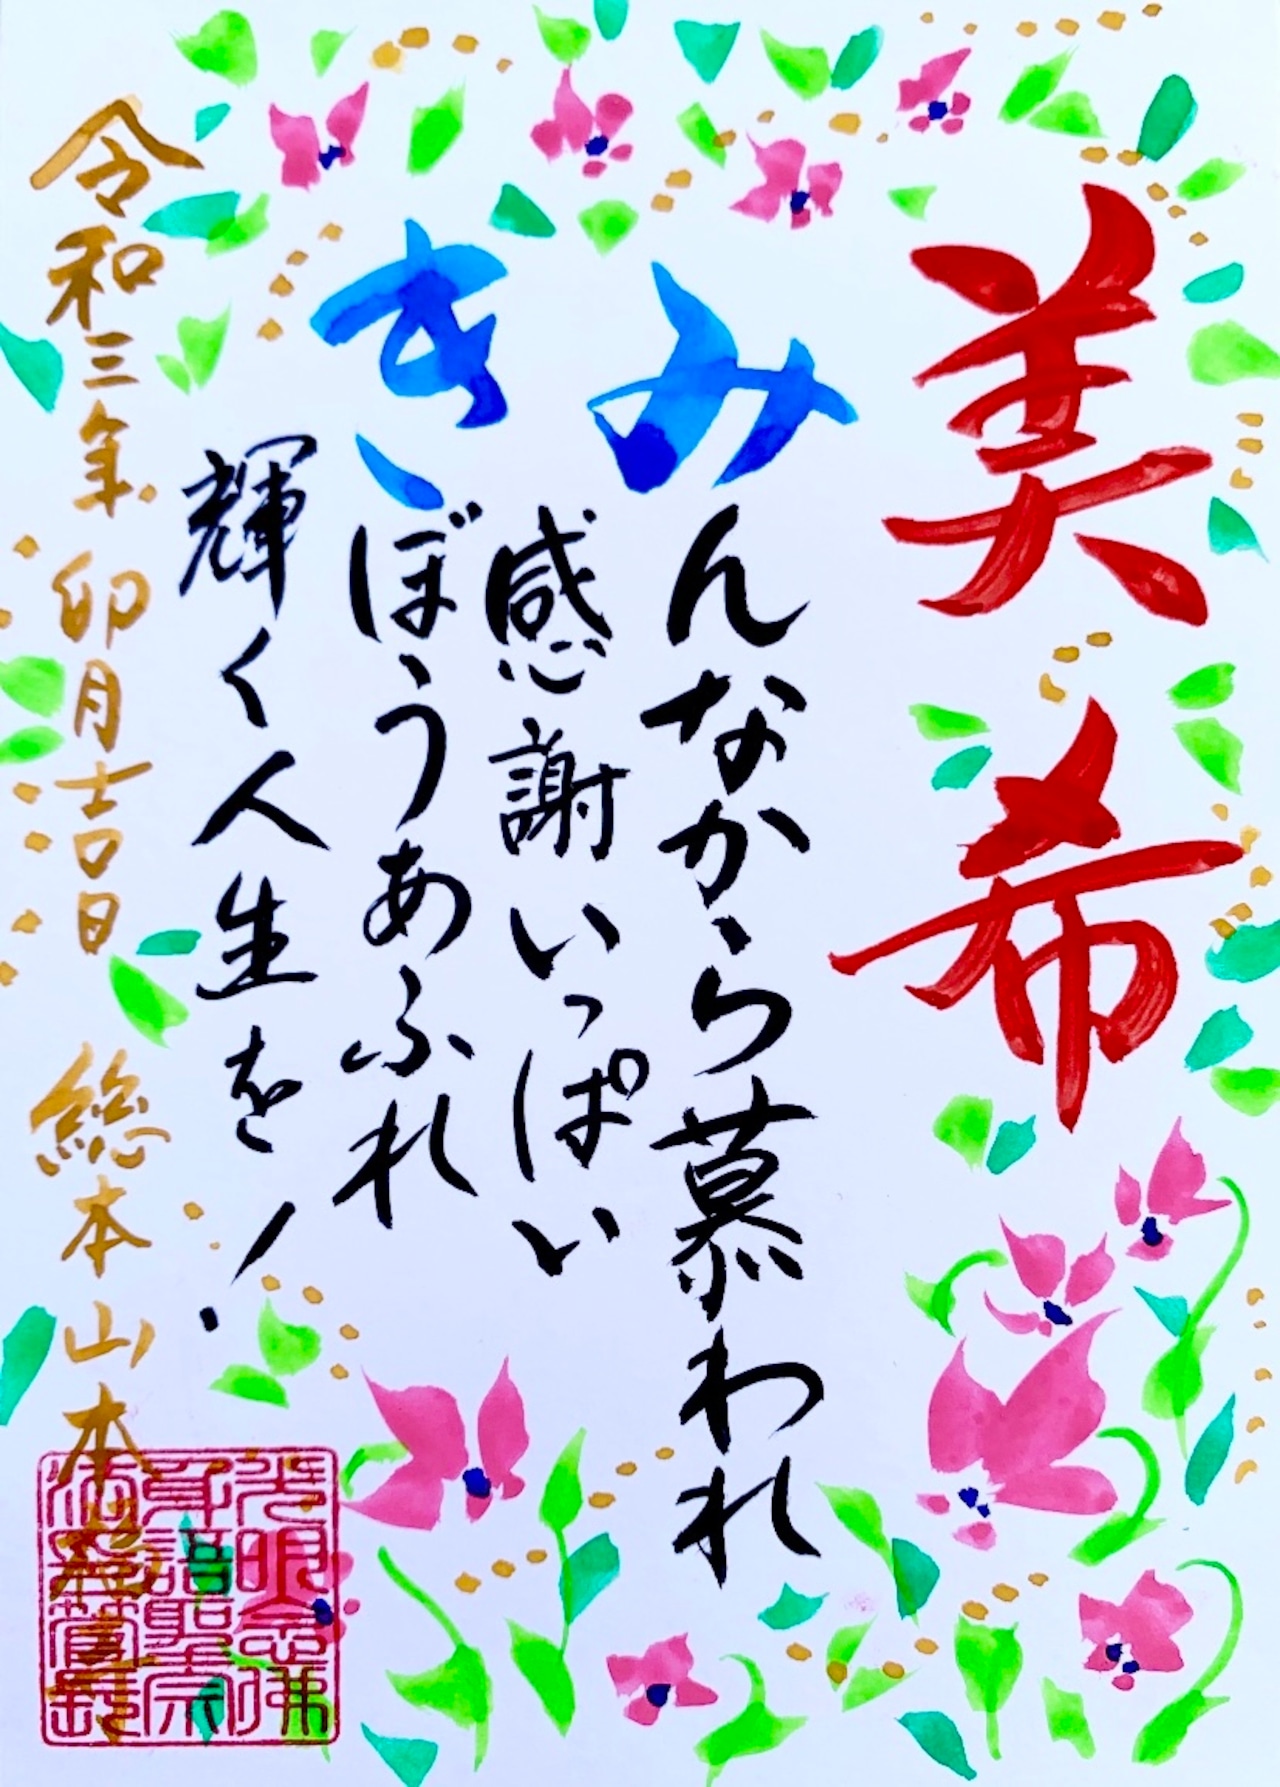 美希
みんなから慕われ
感謝いっぱい
きぼうあふれ
輝く人生を!
令和三年 卯月吉日 総本山本
光明念佛
身語聖宗